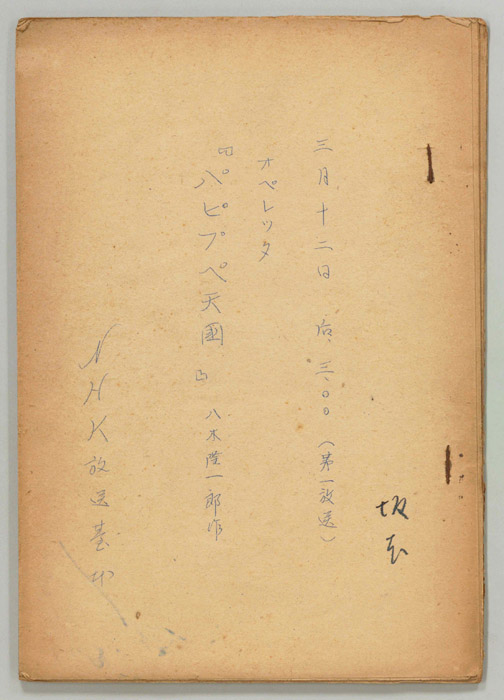 三月十二日 后、三、〇〇（第一放送）
オペレッタ
『パピプペ天國』 八木隆一郎作
NHK放送臺本
坂本